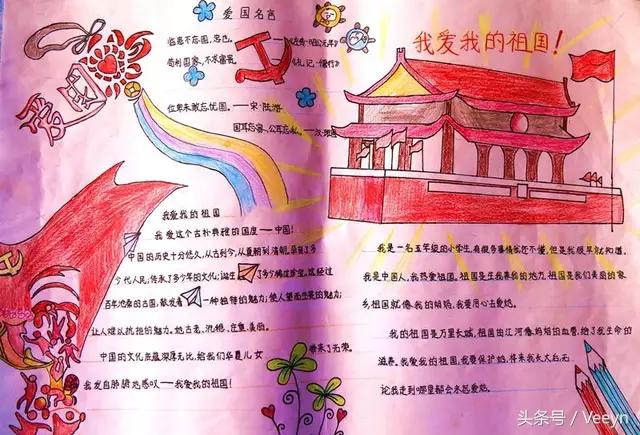 爱国名言
临患不忘国,忠也。 ——《左传·昭公元年》
苟利国家,不求富贵。 ——《礼记·儒行》
位卑未敢忘忧国。——宋·陆游
国耳忘家,公耳忘私。——汉
爱
我爱我的祖国!
我爱我的祖国
我爱这个古朴典雅的国度——中国!
中国的历史十分悠久,从古到今,从夏朝到清朝,
今代人民;传承了多少年的文化;诞生了多少
百年沧桑的古国,散发着一种独特的魅力;使人望而生畏的魅力;
让人难以抗拒的魅力。她古老、沉稳、庄重、美丽。
中国的文化底蕴深厚无比,给我们华夏儿女带来了无荣。
我发自肺腑地感叹——我爱我的祖国!
我是一名五年级的小学生,有很多事情我还不懂,但是我很早就知道,
我是中国人,我热爱祖国。祖国是生我养我的地方,祖国是我们美丽的家
乡,祖国就像我的妈妈,我要用心去爱她。
我的祖国是万里长城,祖国的江河像妈妈的血管,给了我生命的
滋养。我爱我的祖国,我要保护她,将来我长大后,无
论我走到哪里都会永远爱她。
头条号 / Veeyn